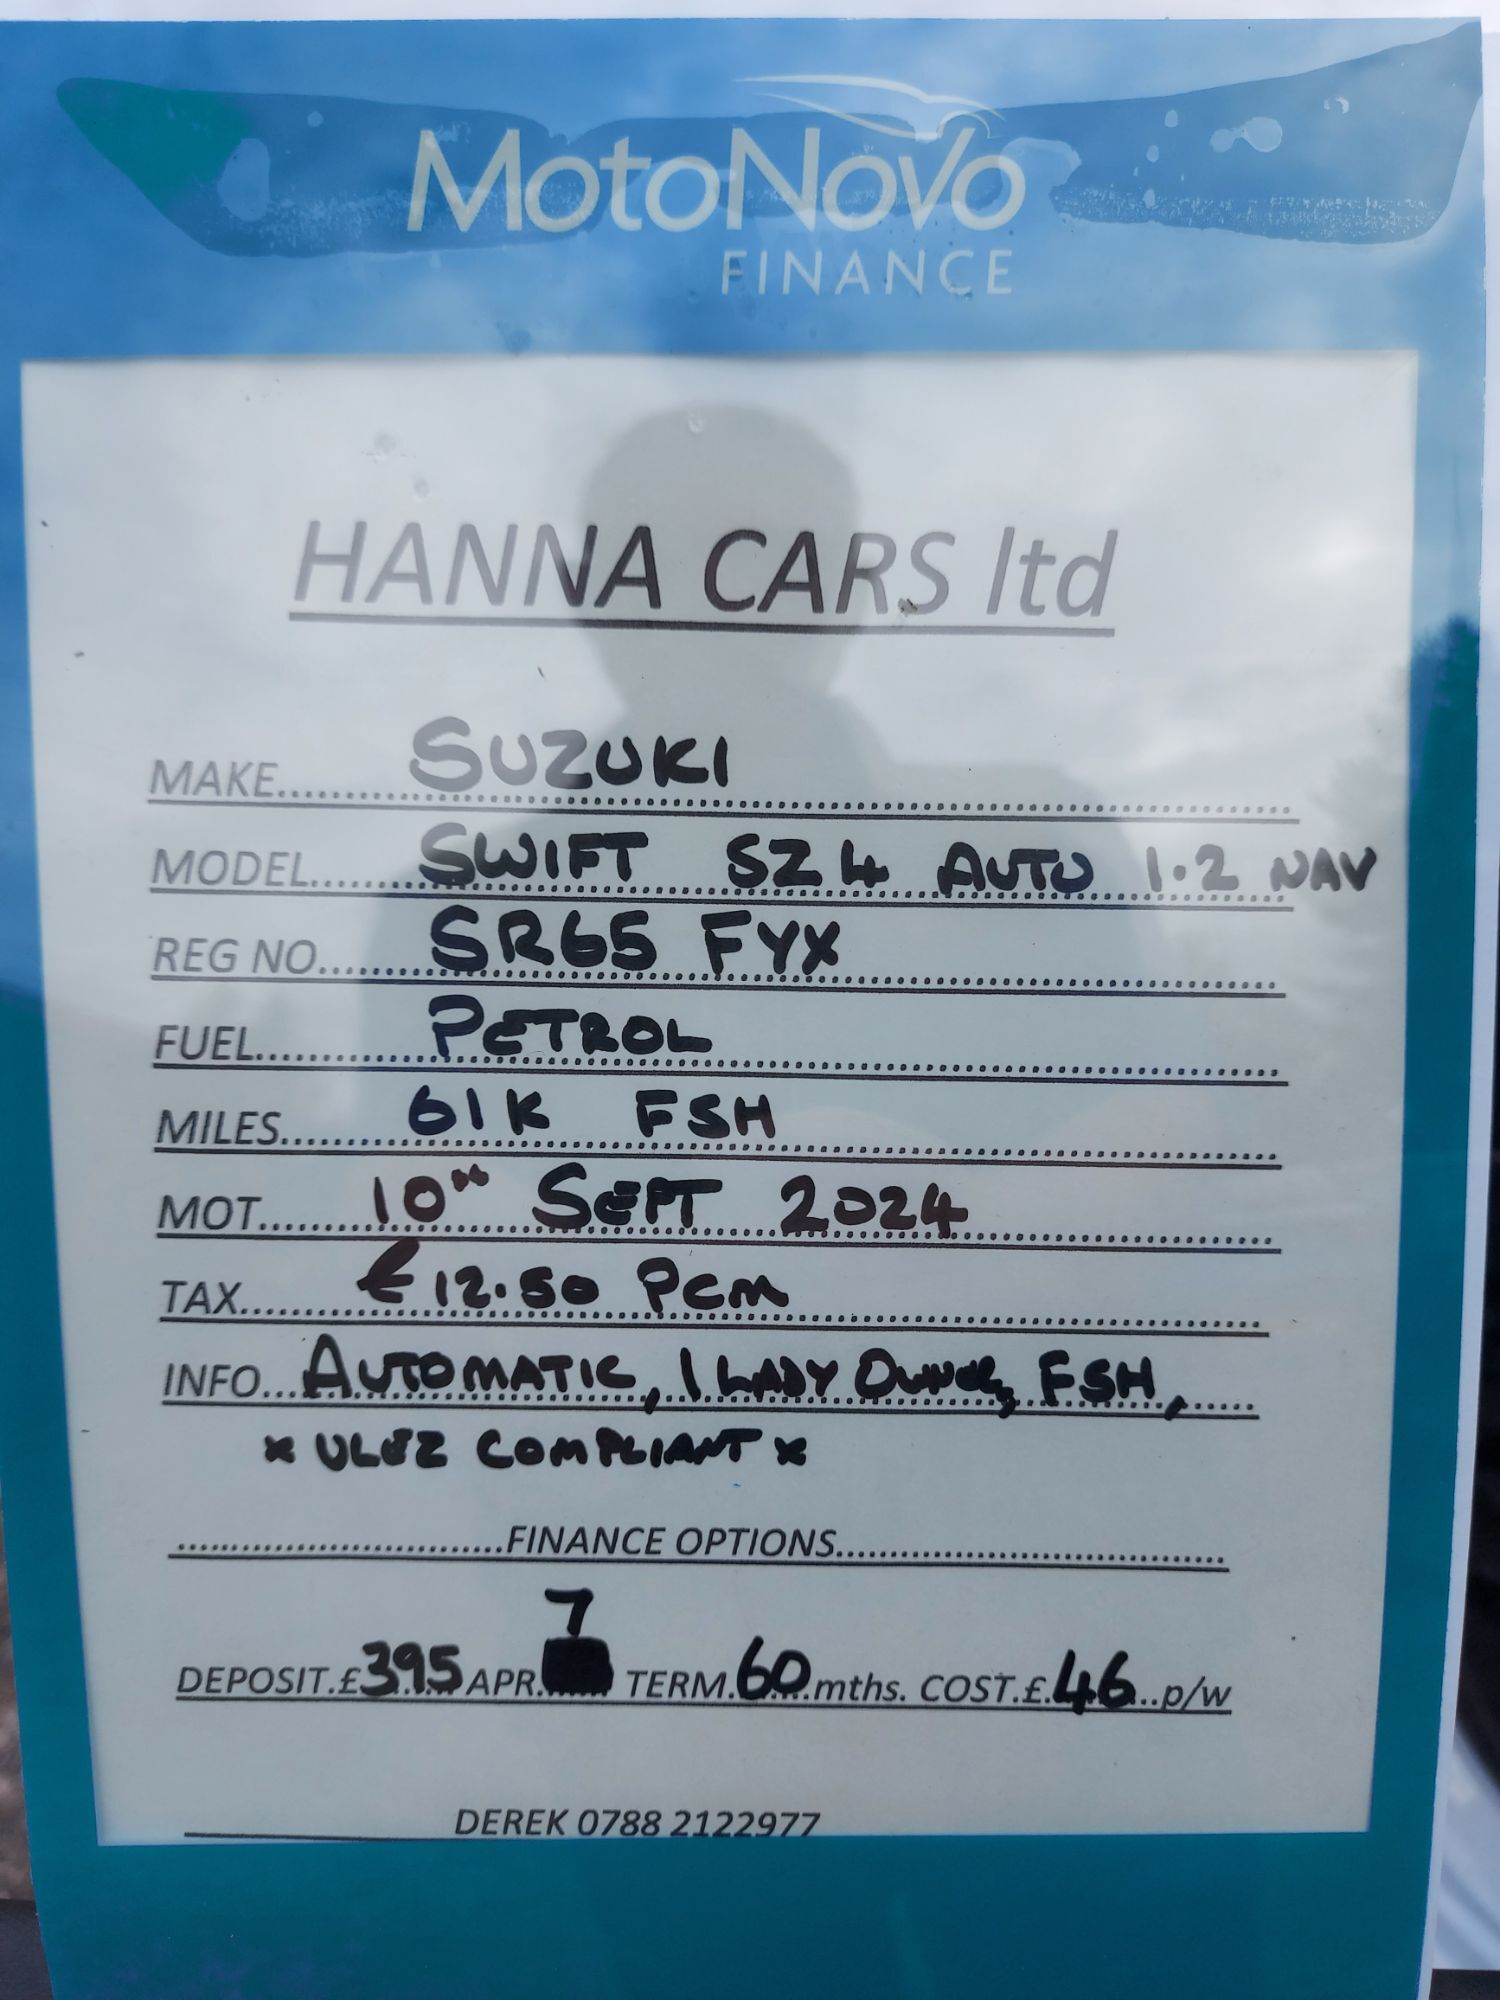 MotoNovo
FINANCE
HANNA CARS ltd
MAKE.... SUZUKI
MODEL.... SWIFT SZ4 AUTO 1.2 NAV
REG NO.... SR65 FYX
FUEL.... PETROL
MILES.... 61K FSH
MOT.... 10TH SEPT 2024
TAX.... £12.50 PCM
INFO... AUTOMATIC, 1 LADY OWNER, FSH,
* ULEZ COMPLIANT *
....FINANCE OPTIONS....
7
DEPOSIT.£395 APR. TERM.60.mths. COST.£.46..p/w
DEREK 0788 2122977